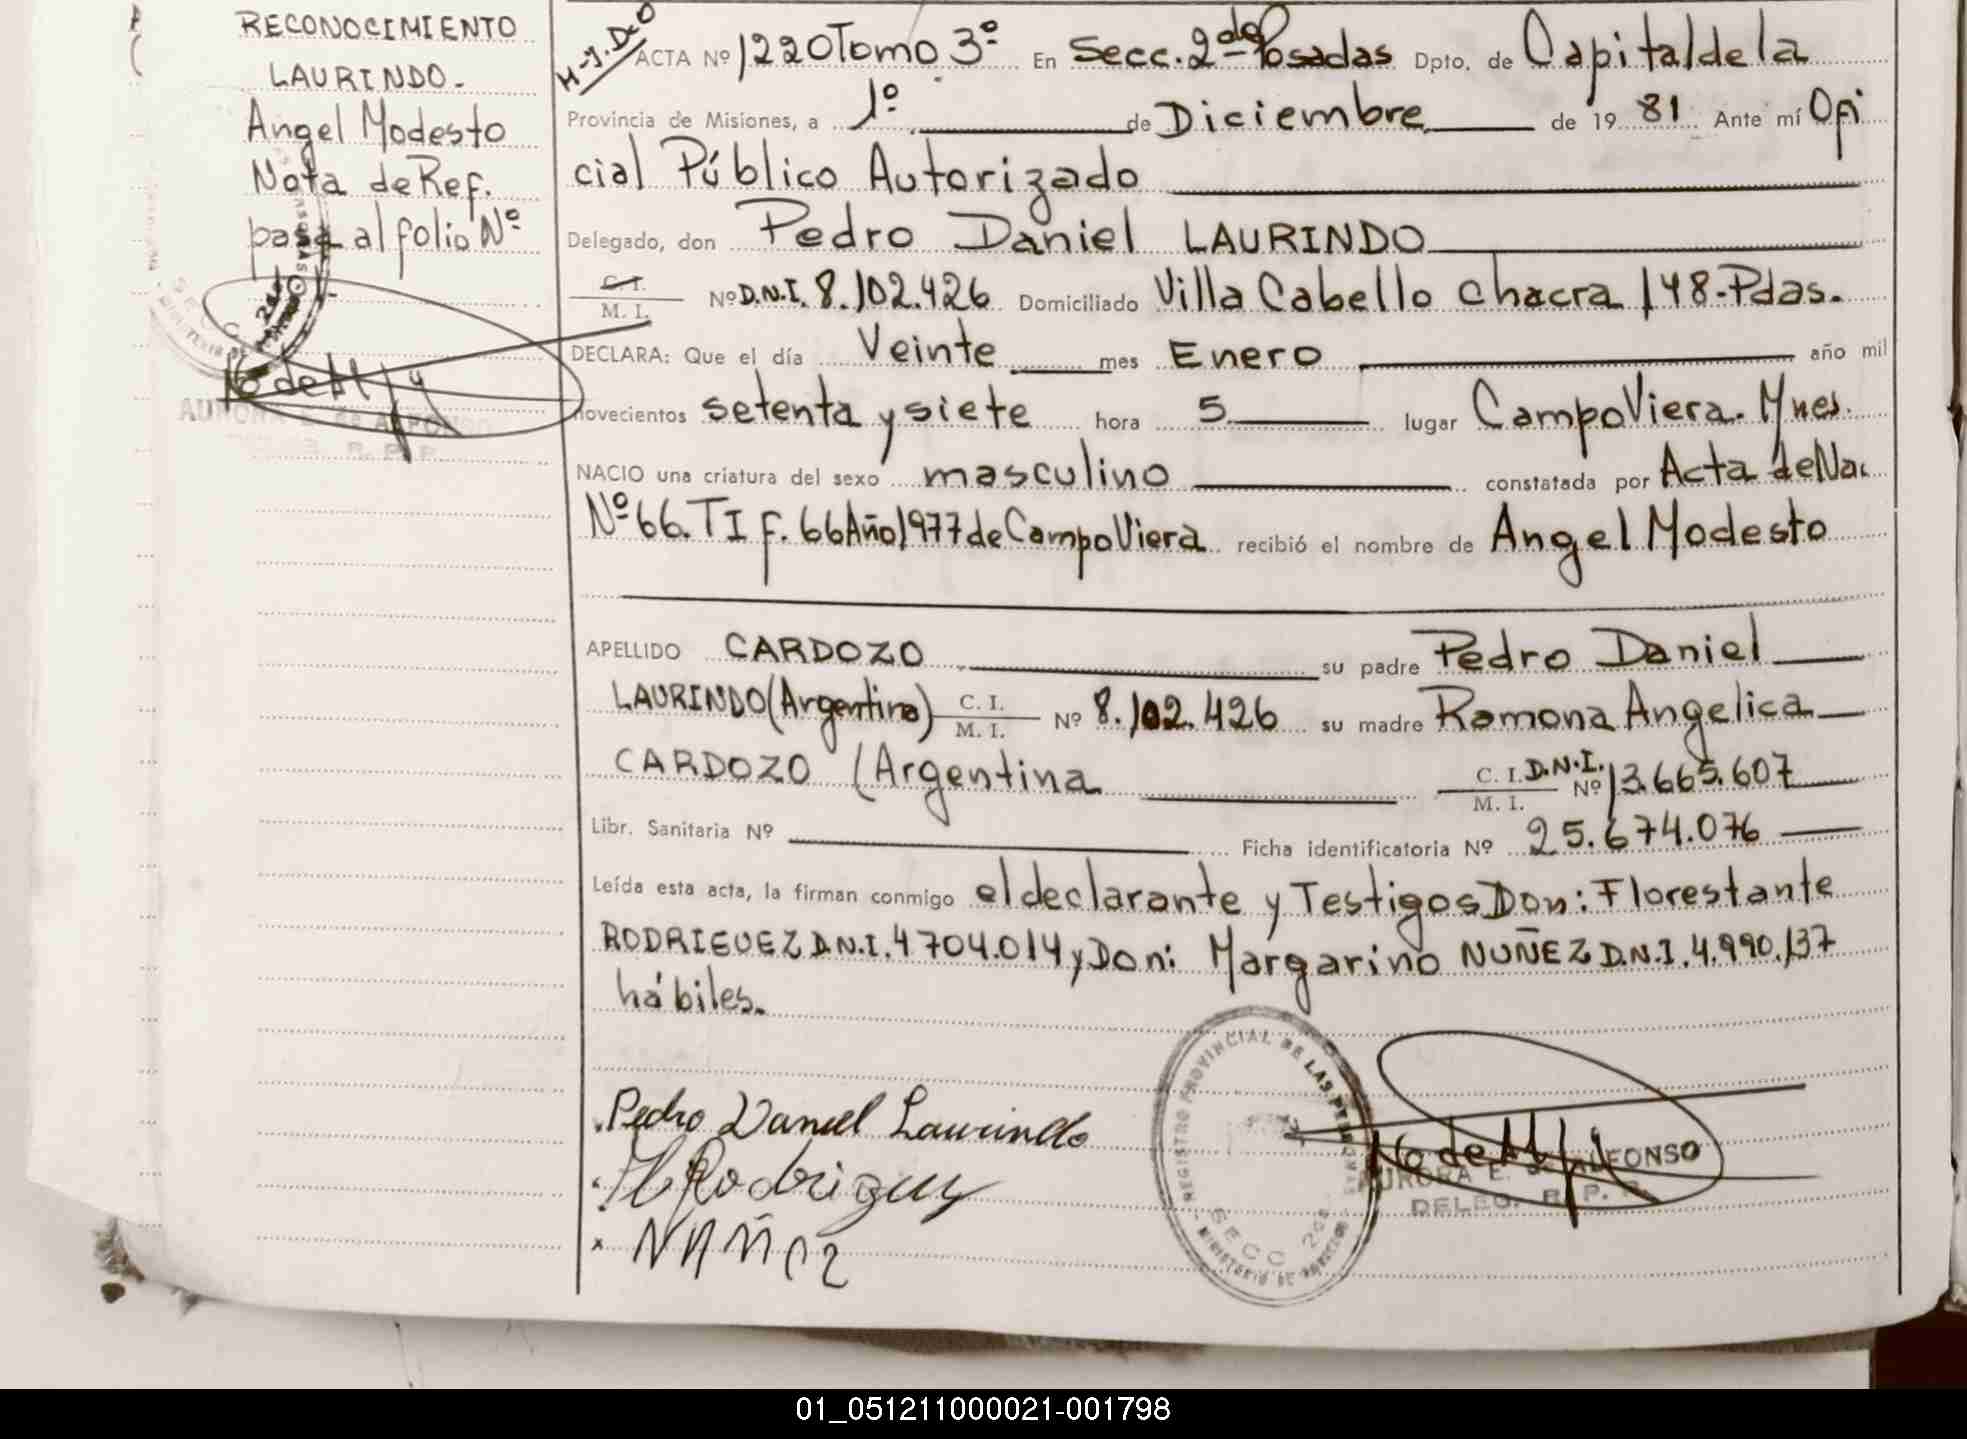 RECONOCIMIENTO
LAURINDO.
Angel Modesto
Nota de Ref.
pasa al folio Nº
AURORA E. de ALFONSO
DELEG. R. P. P.
H-J. DeO
ACTA Nº 1220 Tomo 3º En Secc. 2da Posadas Dpto. de Capital de la
Provincia de Misiones, a 1º de Diciembre de 19 81 Ante mí Ofi
cial Público Autorizado
Delegado, don Pedro Daniel LAURINDO
C. I.
M. I. Nº D.N.I. 8.102.426 Domiciliado Villa Cabello Chacra 148-Pdas.
DECLARA: Que el día Veinte mes Enero año mil
novecientos setenta y siete hora 5 lugar Campo Viera. Mnes.
NACIO una criatura del sexo masculino constatada por Acta de Nac
Nº 66. T I F. 66 Año 1977 de Campo Viera recibió el nombre de Angel Modesto
APELLIDO CARDOZO su padre Pedro Daniel
LAURINDO (Argentino) C. I. M. I. Nº 8.102.426 su madre Ramona Angelica
CARDOZO (Argentina C. I. M. I. D.N.I. Nº 13.665.607
Libr. Sanitaria Nº Ficha identificatoria Nº 25.674.076
Leída esta acta, la firman conmigo el declarante y Testigos Don: Florestante
RODRIEUEZ D.N.I. 4704.014 y Don: Margarino NUÑEZ D.N.I. 4.990.137
hábiles.
Pedro Daniel Laurindo
Rodriguez
REGISTRO PROVINCIAL DE LAS PERSONAS
SECC 2da
AURORA E. de ALFONSO
DELEG. R. P. P.
01_051211000021-001798